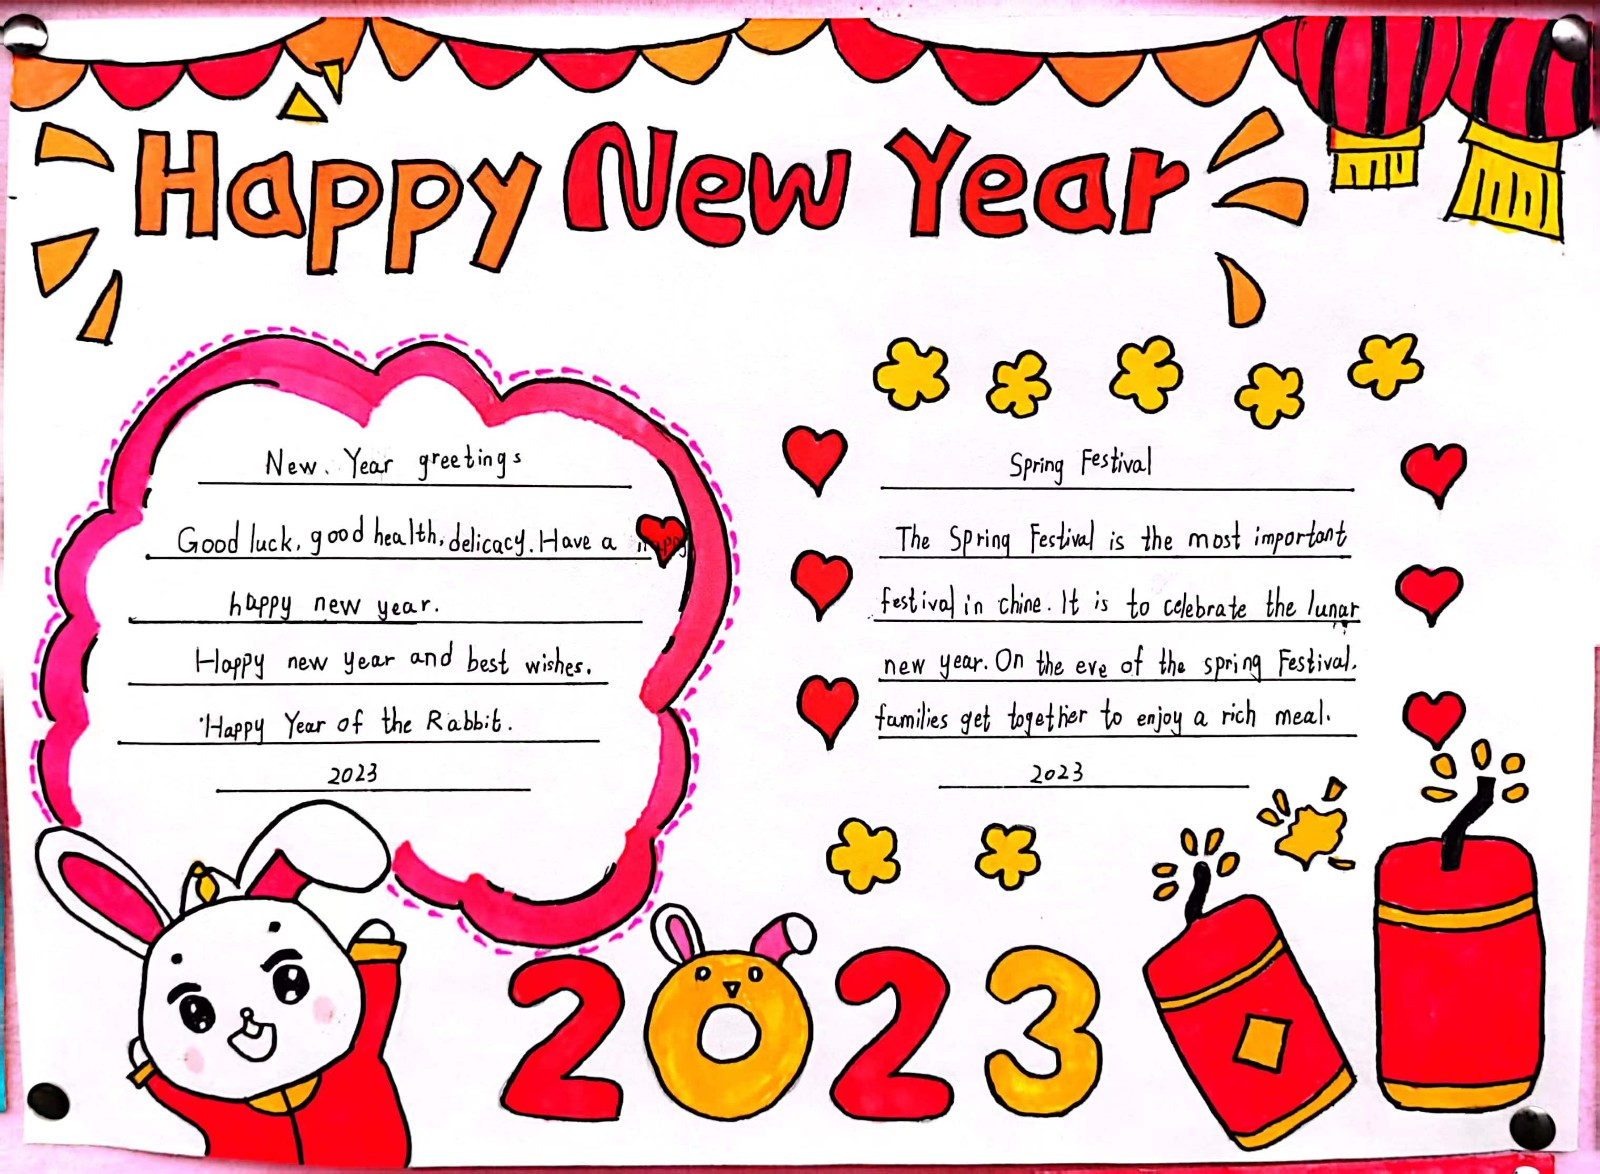 Happy New Year
New. Year greetings
Good luck, good health, delicacy. Have a
happy new year.
Happy new year and best wishes.
Happy Year of the Rabbit.
2023
Spring Festival
The Spring Festival is the most important
festival in chine. It is to celebrate the lunar
new year. On the eve of the spring Festival.
families get together to enjoy a rich meal.
2023
2023